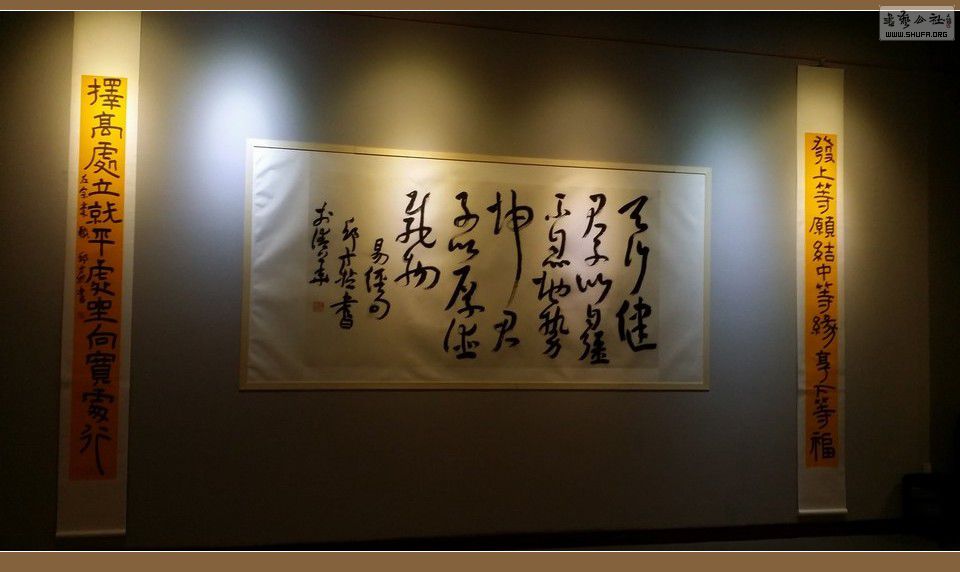 發上等願結中等緣享下等福
天行健
君子以自彊
不息地勢
坤君
子以厚德
載物
易經句
邱才楨書
於清華
擇髙處立就平處坐向寬處行
左宗棠
書藝公社
WWW.SHUFA.ORG